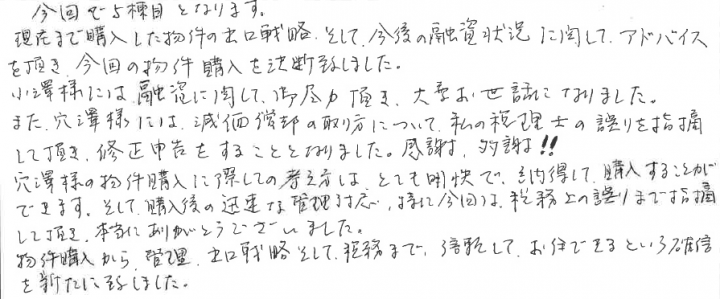 今回で5棟目となります。
現在まで購入した物件の出口戦略、そして、今後の融資状況に関して、アドバイス
を頂き、今回の物件購入を決断致しました。
小澤様には、融資に関して、御尽力頂き、大変お世話になりました。
また、穴澤様には、減価償却の取り方について、私の税理士の誤りを指摘
して頂き、修正申告をすることとなりました。感謝、多謝!!
穴澤様の物件購入に際しての考え方は、とても明快で、納得して、購入することが
できます。そして、購入後の迅速な管理対応、特に今回は、税務上の誤りまで指摘
して頂き、本当にありがとうございました。
物件購入から、管理、出口戦略そして、税務まで、信頼して、お任せできるという確信
を新たに致しました。